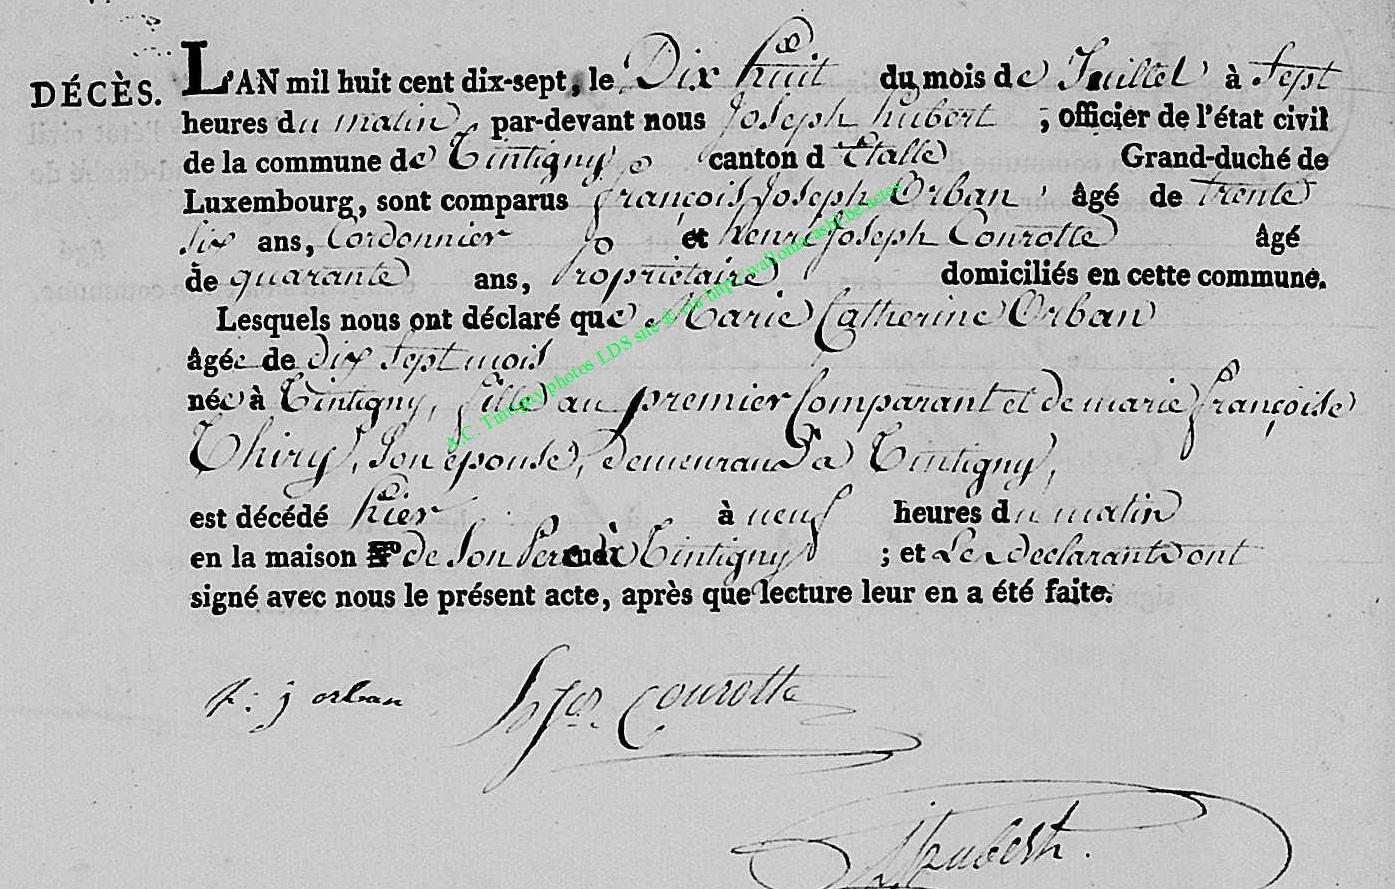 DÉCÈS.
L'AN mil huit cent dix-sept, le Dix huit du mois de Juillet à Sept
heures du matin, par-devant nous Joseph hubert ; officier de l'état civil
de la commune de Tintigny canton d'Etalle Grand-duché de
Luxembourg, sont comparus françois Joseph Orban, âgé de trente
Six ans, Cordonnier et henri Joseph Conrotte âgé
de quarante ans, Propriétaire domiciliés en cette commune.
Lesquels nous ont déclaré que Marie Catherine Orban
âgée de dix Sept mois
née à Tintigny, fille au premier Comparant et de marie françoise
Thiry, Son épouse, demeurant a Tintigny,
est décédé hier à neuf heures du matin
en la maison de Son Pere Tintigny ; et Les declarants ont
signé avec nous le présent acte, après que lecture leur en a été faite.
f: j orban Conrotte
Hubert.
A.C. Tintigny photos LDS site © via http://wallonia.cashl.be/actes